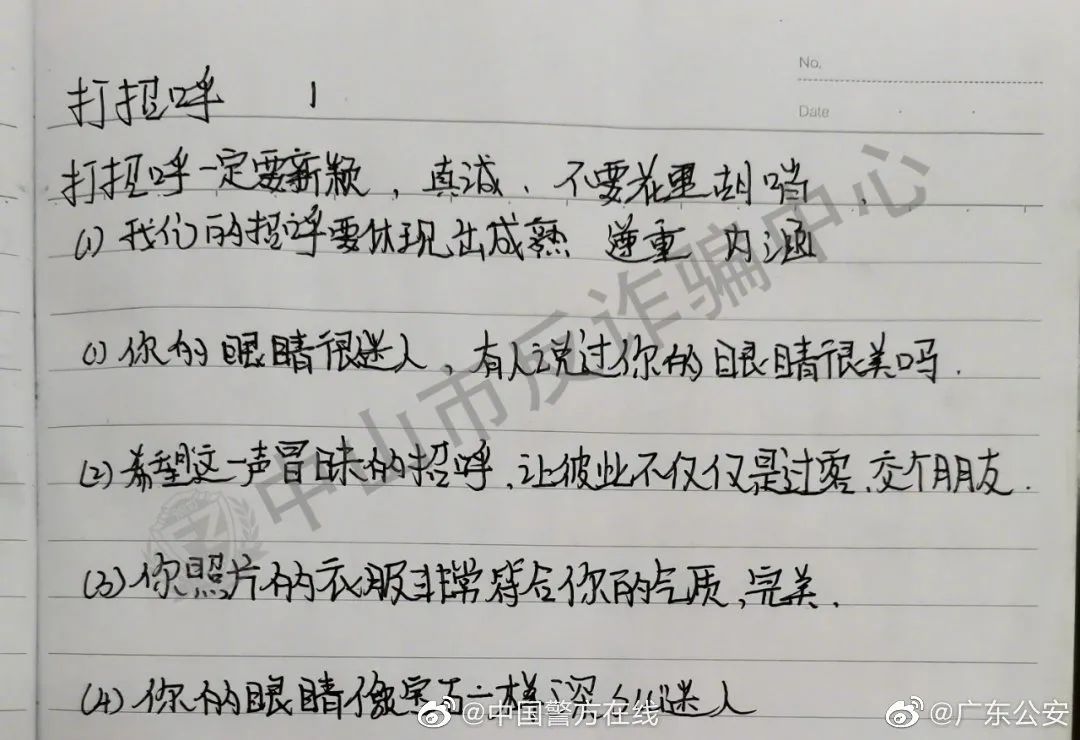 No.
Date
打招呼 1
打招呼一定要新颖,真诚、不要花里胡哨.
(1) 我们的招呼要体现出成熟 莲重 内涵
(1) 你的眼睛很迷人,有人说过你的眼睛很美吗.
(2) 希望这一声冒昧的招呼,让彼此不仅仅是过客、交个朋友.
(3) 你照片的衣服非常符合你的气质,完美.
(4) 你的眼睛像宝石一样深 迷人
中山市反诈骗中心
@中国警方在线
@广东公安